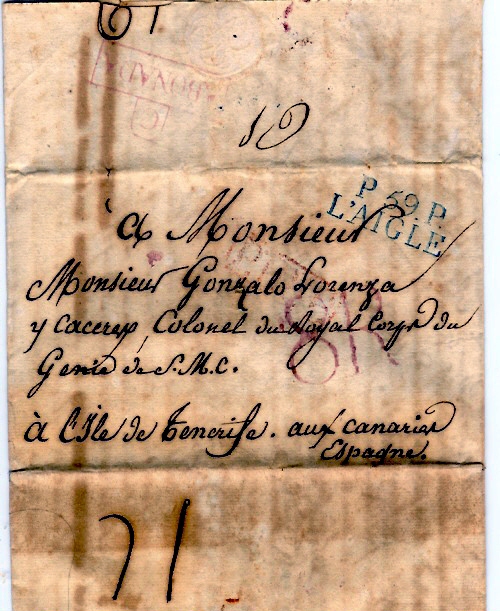 P. 59. P.
L'AIGLE
à Monsieur
Monsieur Gonzalo Lorenza
y caceres, Colonel du Royal Corps du
Genie de S. M. C.
à l'Ile de Tenerife. aux canaries
Espagne.